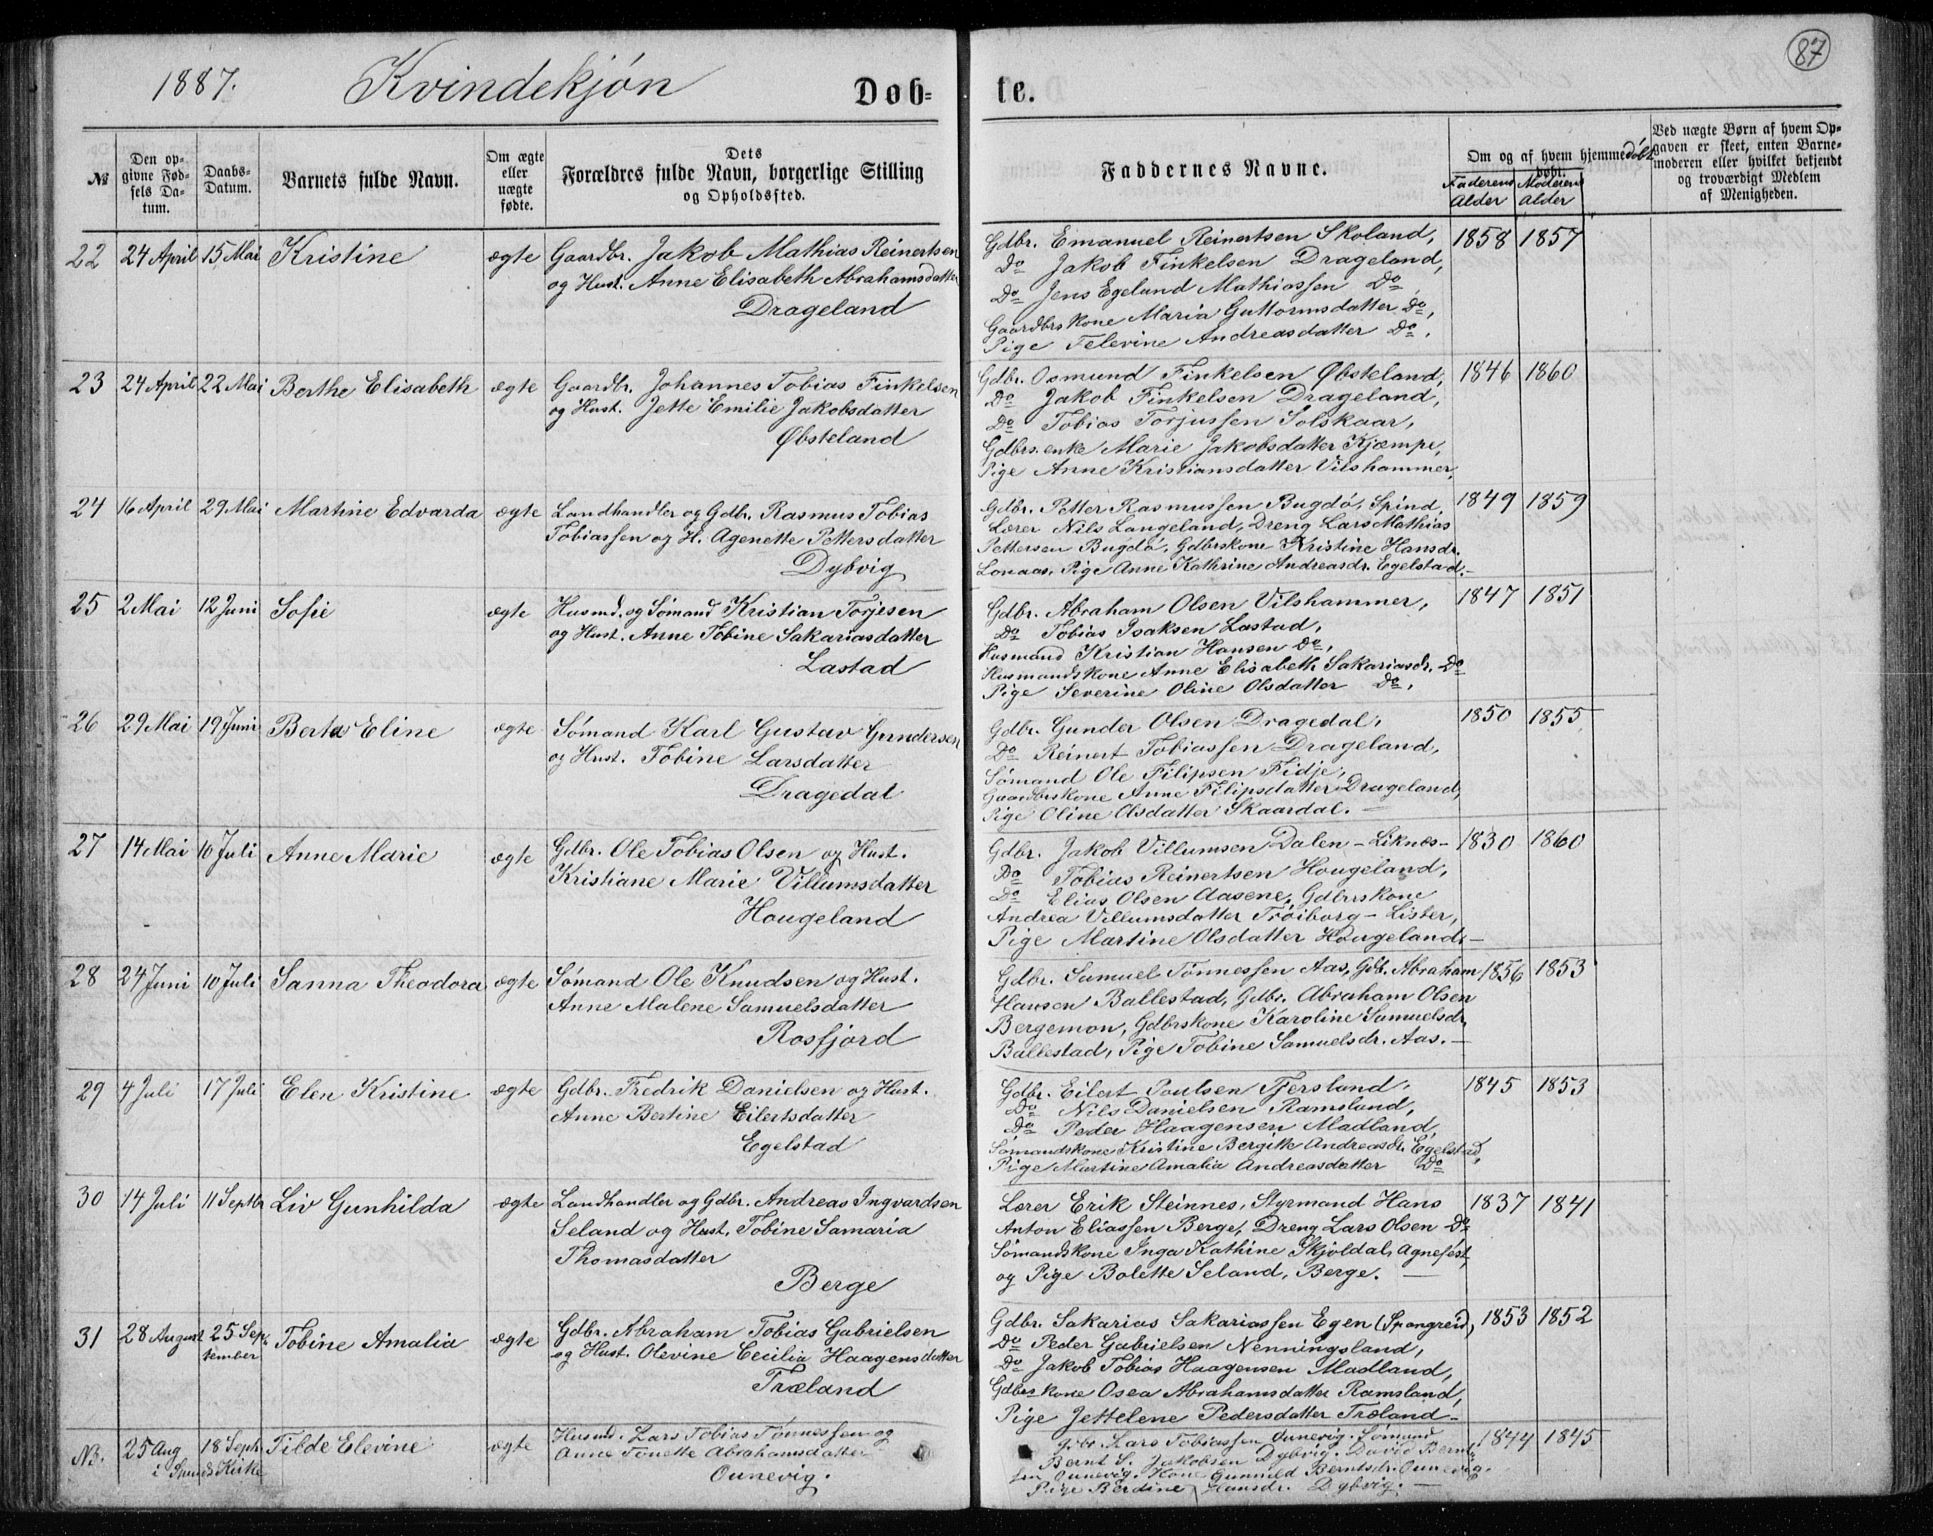 87
1887. Kvindekjøn Døb= te.
№
Den op-
givne Fød-
sels Da-
tum.
Daabs-
Datum.
Barnets fulde Navn.
Om ægte
eller
uægte
fødte.
Dets
Forældres fulde Navn, borgerlige Stilling
og Opholdssted.
Faddernes Navne.
Om og af hvem hjemmedøbt
Faderens Alder
Moderens Alder
Ved uægte Børn af hvem Op-
gaven er skeet, enten Barne-
moderen eller hvilket bekjendt
og troværdigt Medlem
af Menigheden.
22 24 April 15 Mai Kristine ægte Gaardbr. Jakob Mathias Reinertsen
og Hust. Anne Elisabeth Abrahamsdatter
Drageland
Gdbr. Emanuel Reinertsen Skoland, 1858 1857
Do Jakob Finkelsen Drageland,
Do Jens Egeland Mathiassen Do,
Gaardbrskone Maria Guttormsdatter Do,
Pige Televine Andreasdatter Do.
23 24 April 22 Mai Berthe Elisabeth ægte Gaardbr. Johannes Tobias Finkelsen
og Hust. Jette Emilie Jakobsdatter
Øbsteland
Gdbr. Osmund Finkelsen Øbsteland, 1846 1860
Do Jakob Finkelsen Drageland,
Do Tobias Torjussen Solskaar,
Gdbrs. enke Marie Jakobsdatter Kjæmpe,
Pige Anne Kristiansdatter Vilshammer,
24 16 April 29 Mai Martine Edvarda ægte Landhandler og Gdbr. Rasmus Tobias
Tobiassen og H. Agenette Pettersdatter
Dybvig
Gdbr. Petter Rasmussen Bugdø, Spind, 1849 1859
Lærer Nils Langeland, Dreng Lars Mathias
Pettersen Bugdø, Gdbrskone Kristine Hansdr.
Lonaas, Pige Anne Kathrine Andreasdr. Egelstad.-
25 2 Mai 12 Juni Sofie ægte Husmd. og Sømand Kristian Torjesen
og Hust. Anne Tobine Sakariasdatter
Lastad
Gdbr. Abraham Olsen Vilshammer, 1847 1851
Do Tobias Isaksen Lastad,
Husmand Kristian Hansen Do,
Husmandskone Anne Elisabeth Sakariasdr. Do
Pige Severine Oline Olsdatter Do,
26 29 Mai 19 Juni Berta Eline ægte Sømand Karl Gustav Gundersen
og Hust. Tobine Larsdatter
Dragedal
Gdbr. Gunder Olsen Dragedal, 1850 1855
Do Reinert Tobiassen Drageland,
Sømand Ole Filipsen Fidje,
Gaardbrskone Anne Filipsdatter Drageland,
Pige Oline Olsdatter Skaardal. —
27 14 Mai 10 Juli Anne Marie ægte Gdbr. Ole Tobias Olsen og Hust.
Kristiane Marie Villumsdatter
Hougeland
Gdbr. Jakob Villumsen Dalen - Liknæs- 1830 1860
Do Tobias Reinertsen Hougeland,
Do Elias Olsen Aasene, Gdbrskone
Andrea Villumsdatter Trøiborg - Lister,
Pige Martine Olsdatter Hougeland.-
28 24 Juni 10 Juli Sanna Theodora ægte Sømand Ole Knudsen og Hust.
Anne Malene Samuelsdatter
Rosfjord
Gdbr. Samuel Tønnessen Aas, Gdb. Abraham 1856 1853
Hansen Ballestad, Gdbr. Abraham Olsen
Bergemon, Gdbrskone Karoline Samuelsdr.
Ballestad, Pige Tobine Samuelsdr. Aas.-
29 4 Juli 17 Juli Elen Kristine ægte Gdbr. Fredrik Danielsen og Hust.
Anne Bertine Eilertsdatter
Egelstad
Gdbr. Eilert Poulsen Tjersland, 1845 1853
Do Nils Danielsen Ramsland,
Do Peder Haagensen Madland,
Sømandskone Kristine Bergitte Andreasdr. Egelstad,
Pige Martine Amalia Andreasdatter Do
30 14 Juli 11 Septbr Liv Gunhilda ægte Landhandler og Gdbr. Andreas Ingvardsen
Seland og Hust. Tobine Samaria
Thomasdatter
Berge
Lærer Erik Steinnes, Styrmand Hans 1837 1841
Anton Eliassen Berge, Dreng Lars Olsen Do
Sømandskone Inga Kathine Skjoldal, Agnefest,
og Pige Bolette Seland, Berge. —
31 28 August 25 Sep-
tember Tobine Amalia ægte Gdbr. Abraham Tobias Gabrielsen
og Hust. Olevine Cecilia Haagensdatter
Træland
Gdbr. Sakarias Sakariassen Egen (Spangreid) 1853 1852
Do Peder Gabrielsen Nenningsland,
Do Jakob Tobias Haagensen Madland,
Gdbrskone Osea Abrahamsdatter Ramsland,
Pige Jettelene Pedersdatter Træland-
NB. 25 Aug 18 Septr Tilde Elevine ægte Husmd. Lars Tobias Tønnessen og
i Spinds Kirke Anne Tonette Abrahamsdatter
Ounevig.
Gdbr. Lars Tobiassen Ounevig. Sømand 1844 1845
Bernt S. Jakobsen Dybvig. David Bernt-
sen Ounevig. Kone Gunnild Berntsdr. Ounevig.
Pige Berdine Hansdr. Dybvig. —